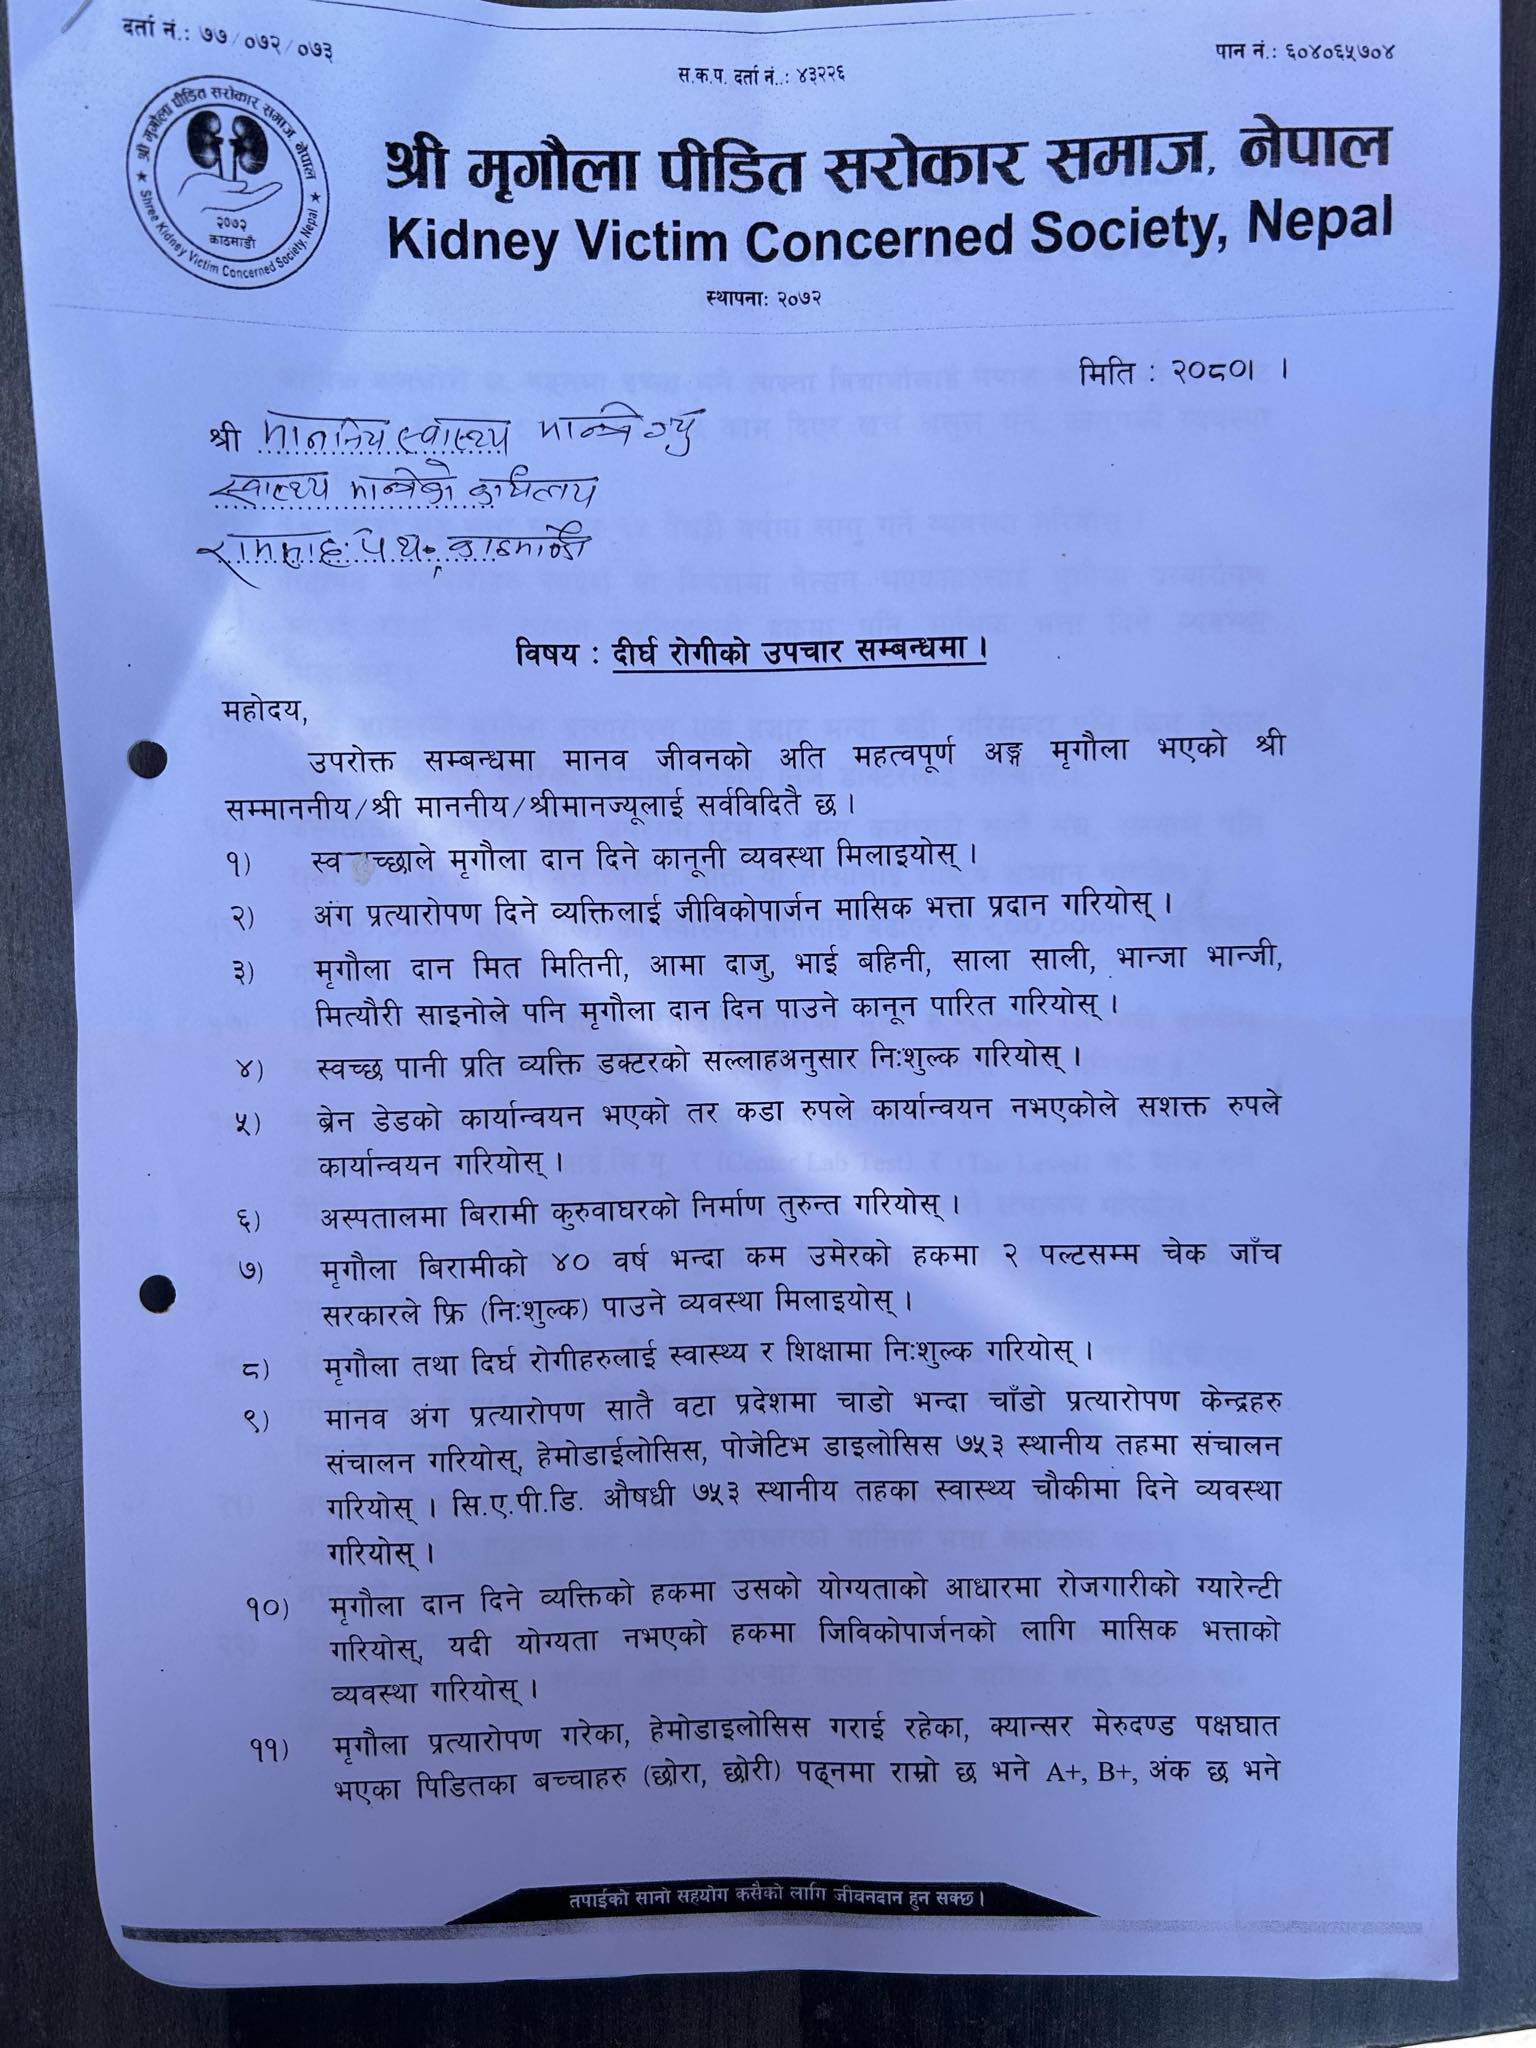 दर्ता नं.: ७७/०७२/०७३
स.क.प. दर्ता नं.: ४३२२६
पान नं.: ६०४०६५७०४
श्री मृगौला पीडित सरोकार समाज, नेपाल
२०७२
काठमाडौं
Shree Kidney Victim Concerned Society, Nepal
श्री मृगौला पीडित सरोकार समाज, नेपाल
Kidney Victim Concerned Society, Nepal
स्थापना: २०७२
मिति : २०८०। ।
श्री माननिय स्वास्थ्य मन्त्रि ज्यु
स्वास्थ्य मन्त्रीको कार्यालय
रामशाह पथ, काठमाडौं
विषय : दीर्घ रोगीको उपचार सम्बन्धमा ।
महोदय,
उपरोक्त सम्बन्धमा मानव जीवनको अति महत्वपूर्ण अङ्ग मृगौला भएको श्री
सम्माननीय/श्री माननीय/श्रीमानज्यूलाई सर्वविदितै छ ।
१) स्व च्छाले मृगौला दान दिने कानूनी व्यवस्था मिलाइयोस् ।
२) अंग प्रत्यारोपण दिने व्यक्तिलाई जीविकोपार्जन मासिक भत्ता प्रदान गरियोस् ।
३) मृगौला दान मित मितिनी, आमा दाजु, भाई बहिनी, साला साली, भान्जा भान्जी,
मित्यौरी साइनोले पनि मृगौला दान दिन पाउने कानून पारित गरियोस् ।
४) स्वच्छ पानी प्रति व्यक्ति डक्टरको सल्लाहअनुसार नि:शुल्क गरियोस् ।
५) ब्रेन डेडको कार्यान्वयन भएको तर कडा रुपले कार्यान्वयन नभएकोले सशक्त रुपले
कार्यान्वयन गरियोस् ।
६) अस्पतालमा बिरामी कुरुवाघरको निर्माण तुरुन्त गरियोस् ।
७) मृगौला बिरामीको ४० वर्ष भन्दा कम उमेरको हकमा २ पल्टसम्म चेक जाँच
सरकारले फ्रि (नि:शुल्क) पाउने व्यवस्था मिलाइयोस् ।
८) मृगौला तथा दिर्घ रोगीहरुलाई स्वास्थ्य र शिक्षामा नि:शुल्क गरियोस् ।
९) मानव अंग प्रत्यारोपण सातै वटा प्रदेशमा चाडो भन्दा चाँडो प्रत्यारोपण केन्द्रहरु
संचालन गरियोस्, हेमोडाईलोसिस, पोजेटिभ डाइलोसिस ७५३ स्थानीय तहमा संचालन
गरियोस् । सि.ए.पी.डि. औषधी ७५३ स्थानीय तहका स्वास्थ्य चौकीमा दिने व्यवस्था
गरियोस् ।
१०) मृगौला दान दिने व्यक्तिको हकमा उसको योग्यताको आधारमा रोजगारीको ग्यारेन्टी
गरियोस्, यदी योग्यता नभएको हकमा जिविकोपार्जनको लागि मासिक भत्ताको
व्यवस्था गरियोस् ।
११) मृगौला प्रत्यारोपण गरेका, हेमोडाइलोसिस गराई रहेका, क्यान्सर मेरुदण्ड पक्षघात
भएका पिडितका बच्चाहरु (छोरा, छोरी) पढ्नमा राम्रो छ भने A+, B+, अंक छ भने
तपाईको सानो सहयोग कसैको लागि जीवनदान हुन सक्छ ।